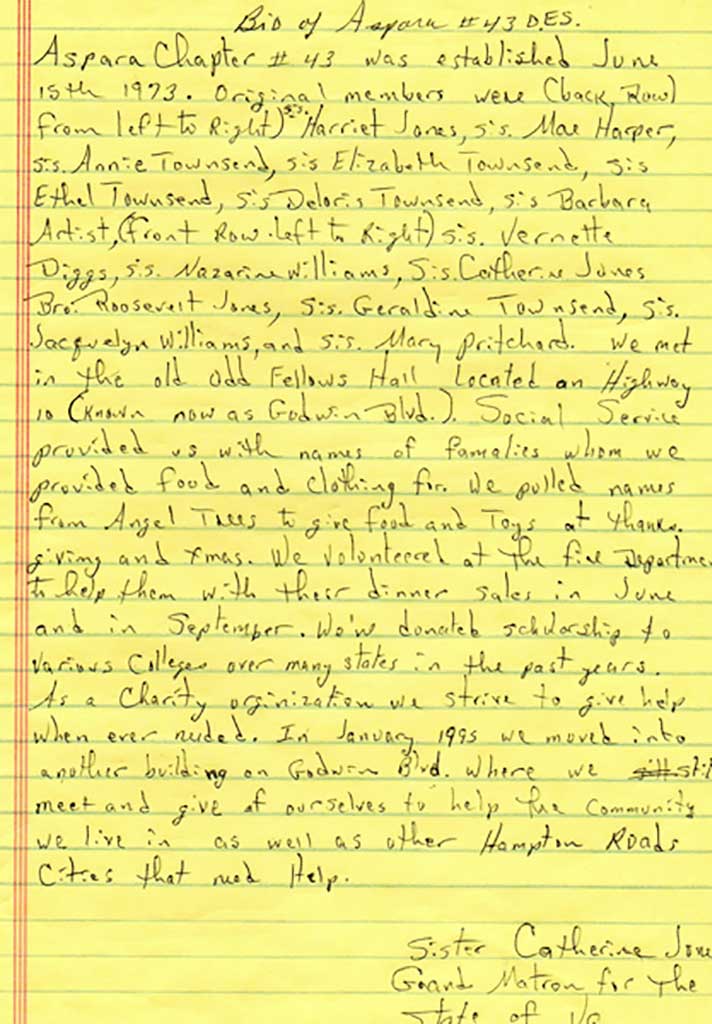 Bio of Aspara #43 O.E.S.
Aspara Chapter # 43 was established June
15th 1973. Original members were (back Row)
from left to Right) sis. Harriet Jones, sis. Mae Harper,
sis. Annie Townsend, sis Elizabeth Townsend, sis
Ethel Townsend, sis Deloris Townsend, sis Barbara
Artist, (front Row left to Right) sis. Vernette
Diggs, sis. Nazarine Williams, Sis. Catherine Jones
Bro. Roosevelt Jones, sis. Geraldine Townsend, sis.
Jacquelyn Williams, and sis. Mary Pritchard. We met
in the old Odd Fellows Hall Located on Highway
10 (known now as Godwin Blvd.). Social Service
provided us with names of famalies whom we
provided food and clothing for. We pulled names
from Angel Trees to give food and Toys at thanks.
giving and xmas. We volunteered at the fire Departme
to help them with their dinner sales in June
and in September. We've donated scholarship to
various Colleges over many states in the past years.
As a Charity orginization we strive to give help
when ever needed. In January 1995 we moved into
another building on Godwin Blvd. where we still
meet and give of ourselves to help the community
we live in as well as other Hampton Roads
Cities that need Help.
Sister Catherine Jone
Grand Matron for the
State of Va